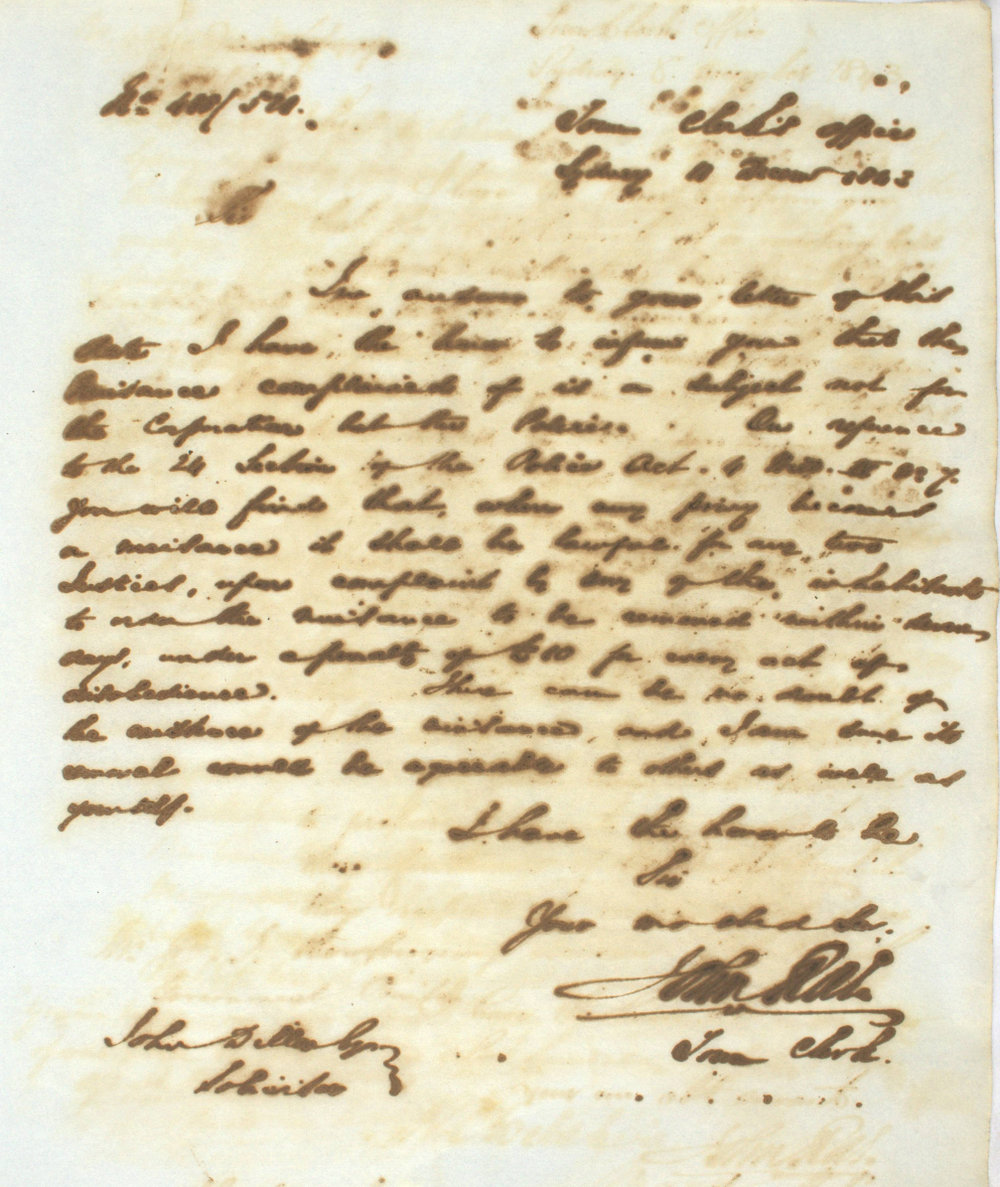 Town Clerk's Office
Sydney 11 1843
Sir
In answer to your letter of this
date I have the honor to inform you that the
Nuisance complained of is a subject not for
the Corporation but the Police. On reference
to the 24 Section of the Police Act. 4 Wm. IV No 7.
You will find that, when any privy becomes
a nuisance it shall be lawful for any two
Justices, upon complaint by any of the inhabitants
to order the nuisance to be removed within seven
days, under a penalty of £10 for every act of
disobedience. There can be no doubt of
the existence of the nuisance, and I am sure its
removal would be agreeable to others as well as
yourself.
I have the honor to be
Sir
Your mo obed Sr.
John Rae
Town Clerk.
John Esqr
Solicitor